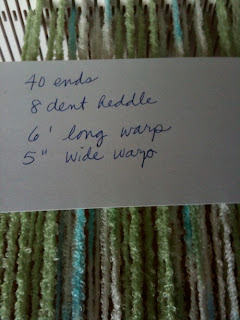 40 ends
8 dent heddle
6' long warp
5" wide warp